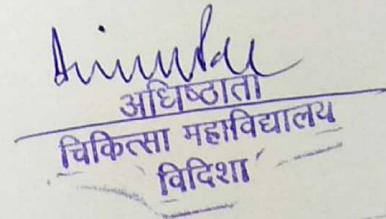 अधिष्ठाता
चिकित्सा महाविद्यालय
विदिशा